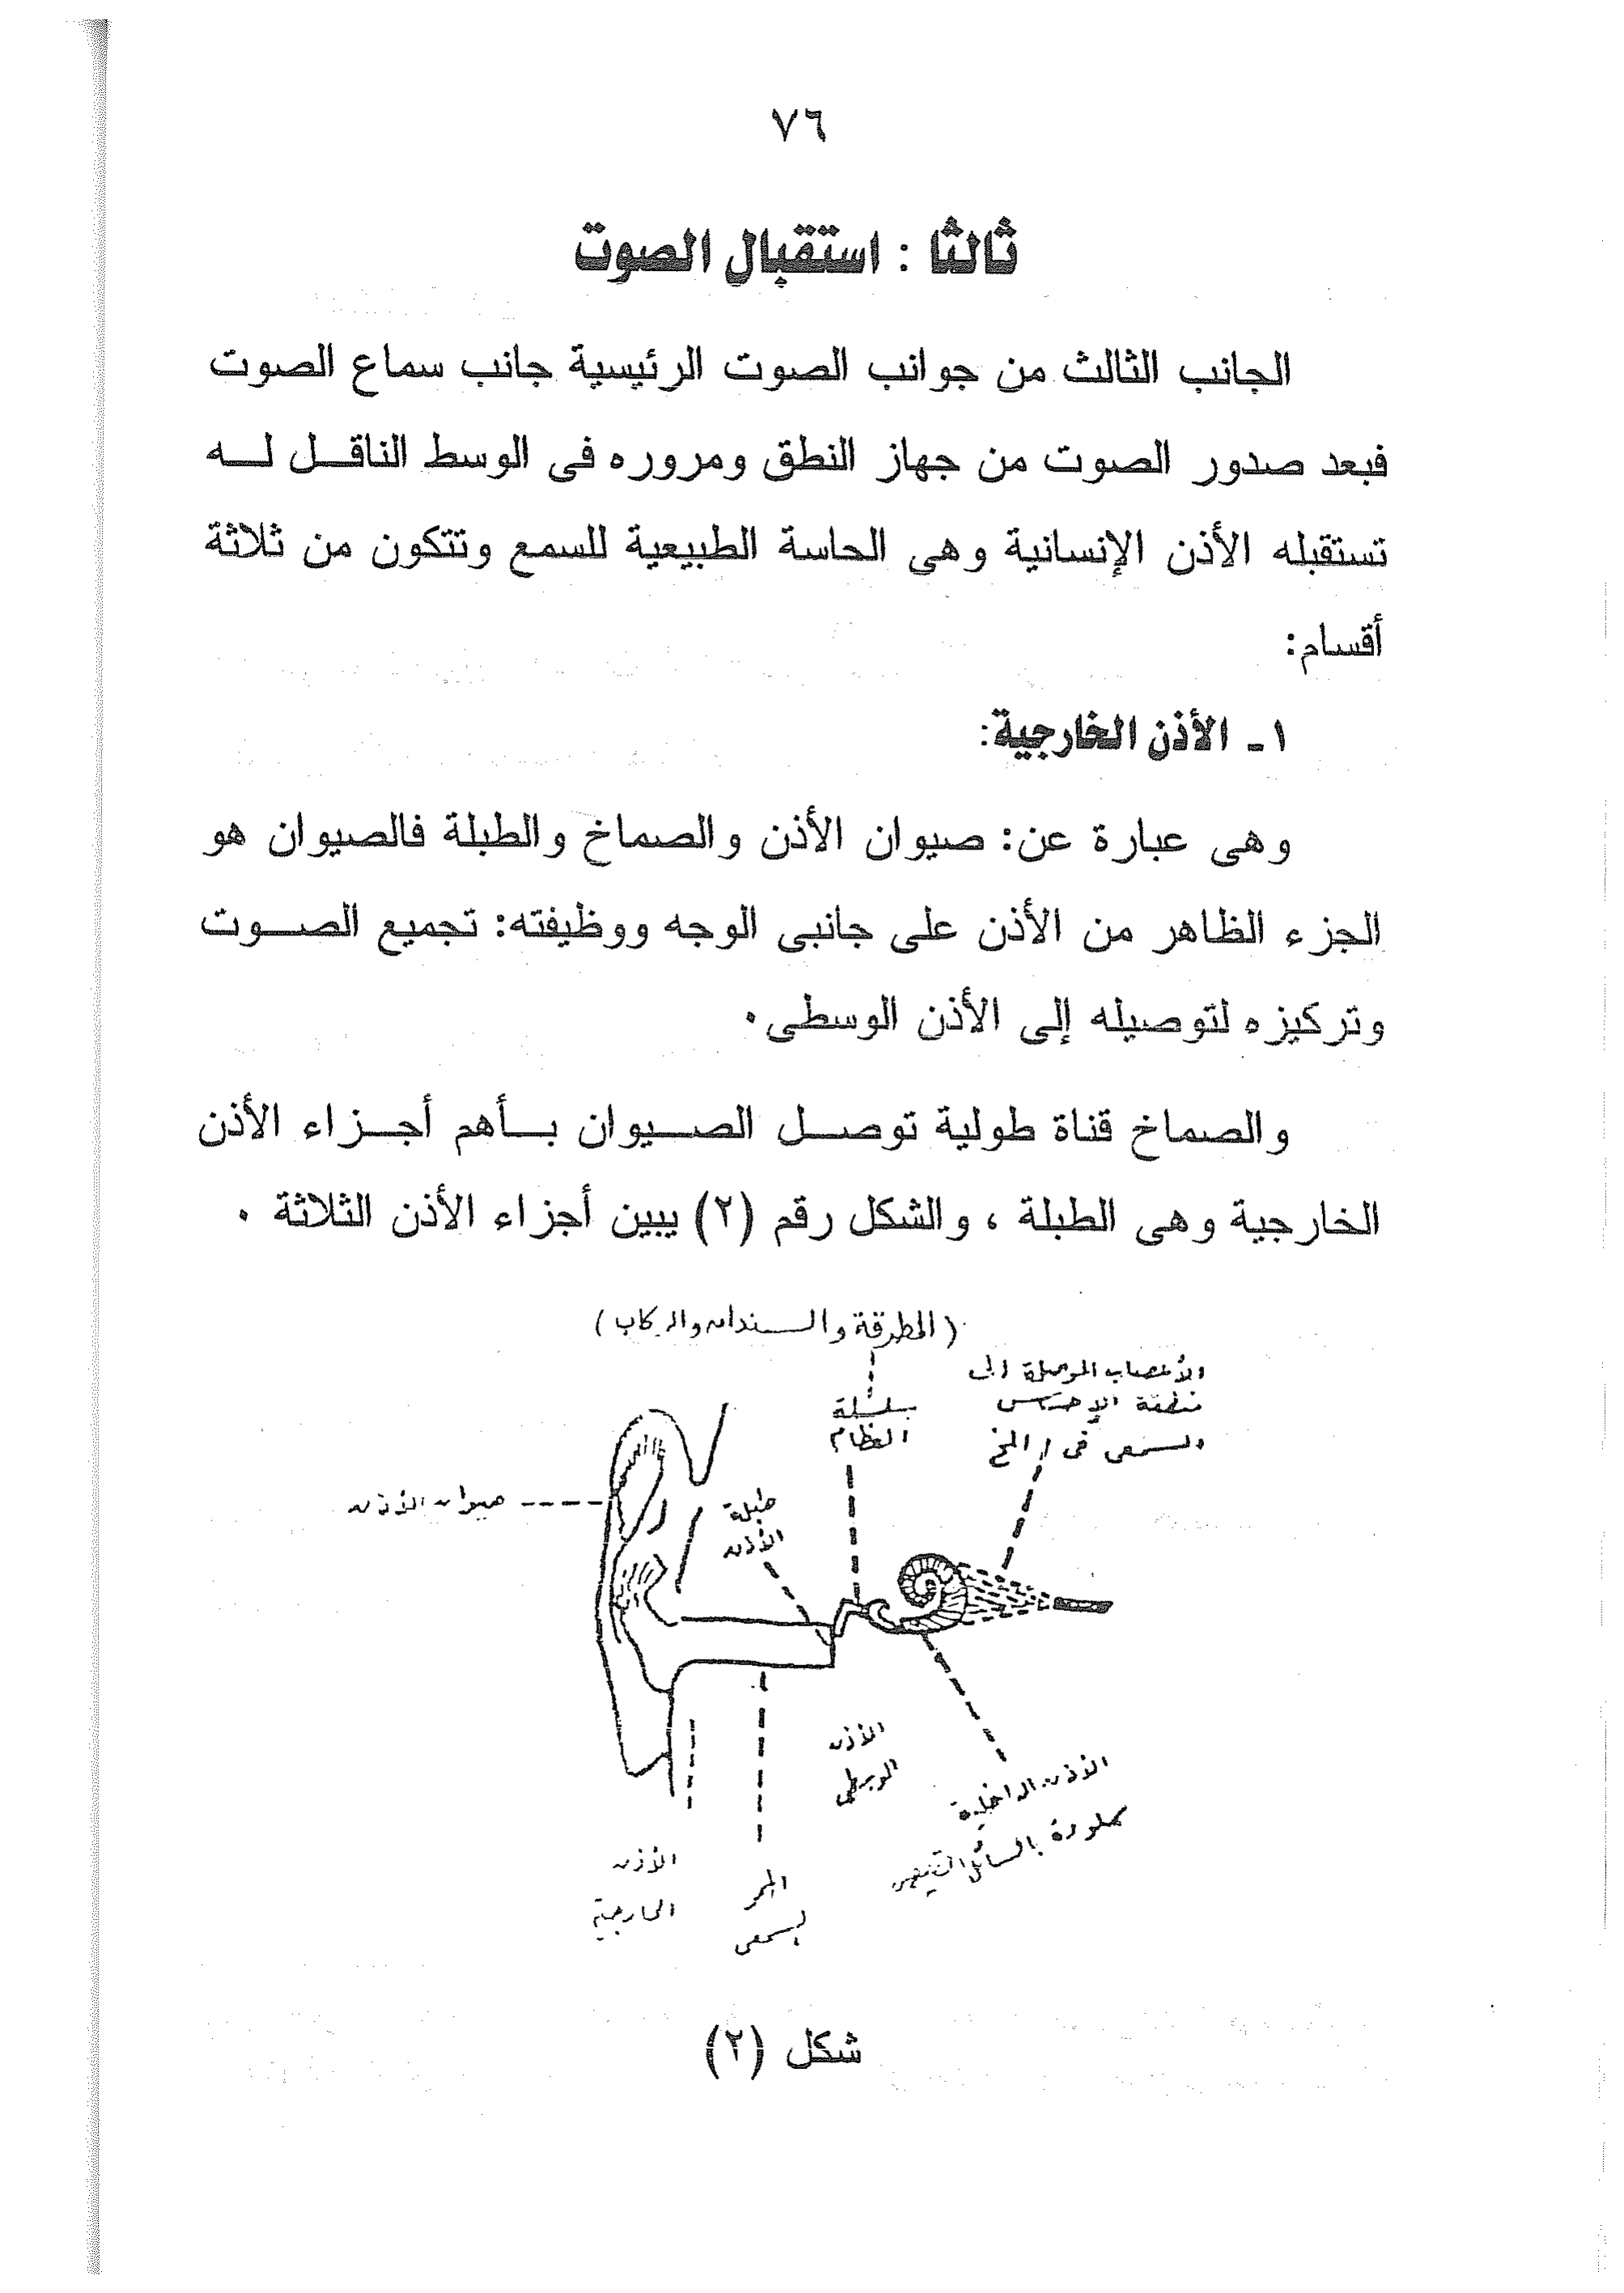 ٧٦
ثالثا : استقبال الصوت
الجانب الثالث من جوانب الصوت الرئيسية جانب سماع الصوت
فبعد صدور الصوت من جهاز النطق ومروره فى الوسط الناقل له
تستقبله الأذن الإنسانية وهى الحاسة الطبيعية للسمع وتتكون من ثلاثة
أقسام:
١ - الأذن الخارجية:
وهى عبارة عن: صيوان الأذن والصماخ والطبلة فالصيوان هو
الجزء الظاهر من الأذن على جانبى الوجه ووظيفته: تجميع الصوت
وتركيزه لتوصيله إلى الأذن الوسطى٠
والصماخ قناة طولية توصل الصيوان بأهم أجزاء الأذن
الخارجية وهى الطبلة ، والشكل رقم (٢) يبين أجزاء الأذن الثلاثة ٠
(المطرقة والسندان والركاب)
الأعصاب الموصلة إلى
منطقة الإحساس
السمعى فى المخ
سلسلة
العظام
طبلة
الأذن
صيوان الأذن
الأذن
الوسطى
الأذن الداخلية
مملوءة بالسائل
الممر
السمعى
الأذن
الخارجية
شكل (٢)